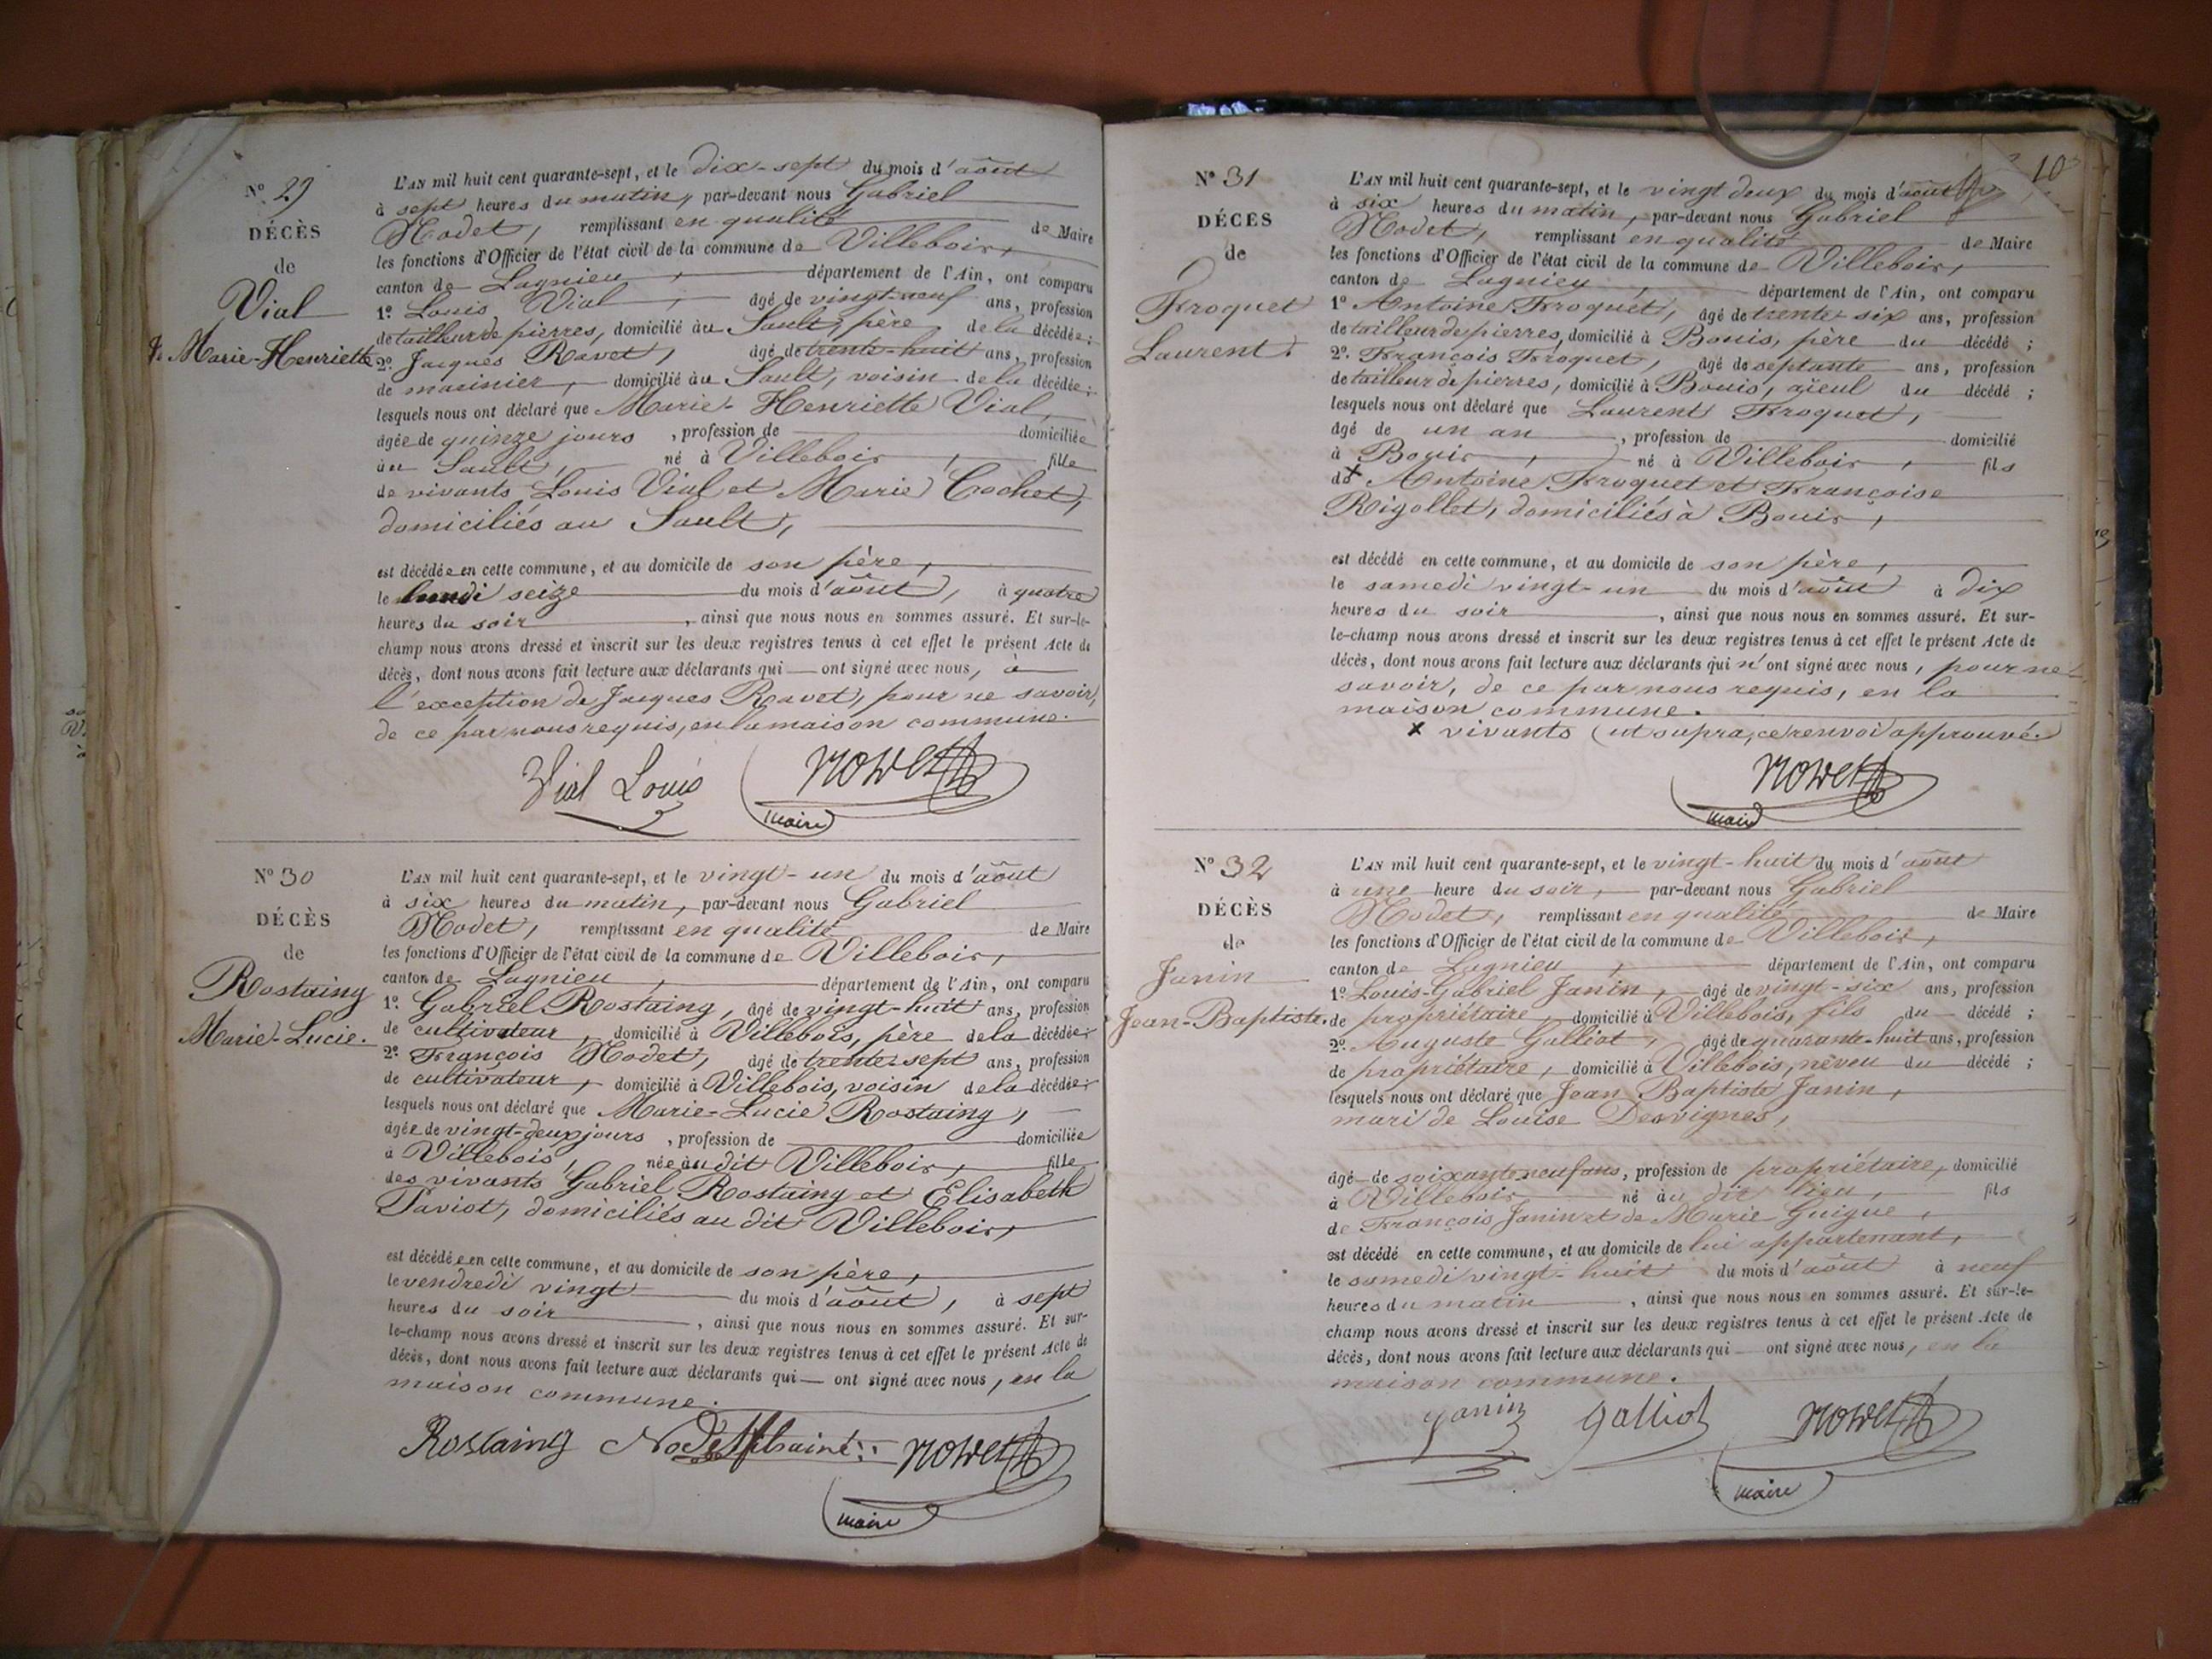 Nº 29
DÉCÈS
de
Vial
Marie-Henriette
L'AN mil huit cent quarante-sept, et le dix-sept du mois d'août
à sept heures du matin, par-devant nous Gabriel
Nodet, remplissant en qualité de Maire
les fonctions d'Officier de l'état civil de la commune de Villebois,
canton de Lagnieu, département de l'Ain, ont comparu
1º. Louis Vial, âgé de vingt-neuf ans, profession
de tailleur de pierres, domicilié au Sault, père de la décédée;
2º. Jacques Ravet, âgé de trente-huit ans, profession
de marinier, domicilié au Sault, voisin de la décédée;
lesquels nous ont déclaré que Marie-Henriette Vial,
âgée de quinze jours, profession de domiciliée
au Sault, né à Villebois, fille
de vivants Louis Vial et Marie Cochet,
domiciliés au Sault,
est décédée en cette commune, et au domicile de son père,
le lundi seize du mois d'août, à quatre
heures du soir, ainsi que nous nous en sommes assuré. Et sur-le-
champ nous avons dressé et inscrit sur les deux registres tenus à cet effet le présent Acte de
décès, dont nous avons fait lecture aux déclarants qui — ont signé avec nous, à
l'exception de Jacques Ravet, pour ne savoir,
de ce par nous requis, en la maison commune.
Vial Louis NODET
maire
Nº 30
DÉCÈS
de
Rostaing
Marie-Lucie.
L'AN mil huit cent quarante-sept, et le vingt-un du mois d'août
à six heures du matin, par-devant nous Gabriel
Nodet, remplissant en qualité de Maire
les fonctions d'Officier de l'état civil de la commune de Villebois,
canton de Lagnieu, département de l'Ain, ont comparu
1º. Gabriel Rostaing, âgé de vingt-huit ans, profession
de cultivateur, domicilié à Villebois, père de la décédée;
2º. François Nodet, âgé de trente-sept ans, profession
de cultivateur, domicilié à Villebois, voisin de la décédée;
lesquels nous ont déclaré que Marie-Lucie Rostaing,
âgée de vingt-deux jours, profession de domiciliée
à Villebois, née au dit Villebois, fille
des vivants Gabriel Rostaing et Elisabeth
Paviot, domiciliés au dit Villebois,
est décédée en cette commune, et au domicile de son père,
le vendredi vingt du mois d'août, à sept
heures du soir, ainsi que nous nous en sommes assuré. Et sur-
le-champ nous avons dressé et inscrit sur les deux registres tenus à cet effet le présent Acte de
décès, dont nous avons fait lecture aux déclarants qui — ont signé avec nous, en la
maison commune.
Rostaing Nodet NODET
maire
10
Nº 31
DÉCÈS
de
Froquet
Laurent.
L'AN mil huit cent quarante-sept, et le vingt deux du mois d'août
à six heures du matin, par-devant nous Gabriel
Nodet, remplissant en qualité de Maire
les fonctions d'Officier de l'état civil de la commune de Villebois,
canton de Lagnieu, département de l'Ain, ont comparu
1º Antoine Froquet, âgé de trente-six ans, profession
de tailleur de pierres, domicilié à Bouis, père du décédé;
2º. François Froquet, âgé de septante ans, profession
de tailleur de pierres, domicilié à Bouis, aïeul du décédé;
lesquels nous ont déclaré que Laurent Froquet,
âgé de un an, profession de domicilié
à Bouis, né à Villebois, fils
d× Antoine Froquet et Françoise
Rigollet, domiciliés à Bouis,
est décédé en cette commune, et au domicile de son père,
le samedi vingt-un du mois d'août à dix
heures du soir, ainsi que nous nous en sommes assuré. Et sur-
le-champ nous avons dressé et inscrit sur les deux registres tenus à cet effet le présent Acte de
décès, dont nous avons fait lecture aux déclarants qui n'ont signé avec nous, pour ne
savoir, de ce par nous requis, en la
maison commune.
× vivants (ut supra, ce renvoi approuvé.)
NODET
maire
Nº 32
DÉCÈS
de
Janin
Jean-Baptiste.
L'AN mil huit cent quarante-sept, et le vingt-huit du mois d'août
à une heure du soir, par-devant nous Gabriel
Nodet, remplissant en qualité de Maire
les fonctions d'Officier de l'état civil de la commune de Villebois,
canton de Lagnieu, département de l'Ain, ont comparu
1º. Louis-Gabriel Janin, âgé de vingt-six ans, profession
de propriétaire, domicilié à Villebois, fils du décédé;
2º. Auguste Galliot, âgé de quarante-huit ans, profession
de propriétaire, domicilié à Villebois, neveu du décédé;
lesquels nous ont déclaré que Jean Baptiste Janin,
mari de Louise Desvignes,
âgé de soixante neuf ans, profession de propriétaire, domicilié
à Villebois, né au dit lieu, fils
de François Janin et de Marie Guigue,
est décédé en cette commune, et au domicile de lui appartenant,
le samedi vingt-huit du mois d'août à neuf
heures du matin, ainsi que nous nous en sommes assuré. Et sur-le-
champ nous avons dressé et inscrit sur les deux registres tenus à cet effet le présent Acte de
décès, dont nous avons fait lecture aux déclarants qui — ont signé avec nous, en la
maison commune.
Janin galliot NODET
maire